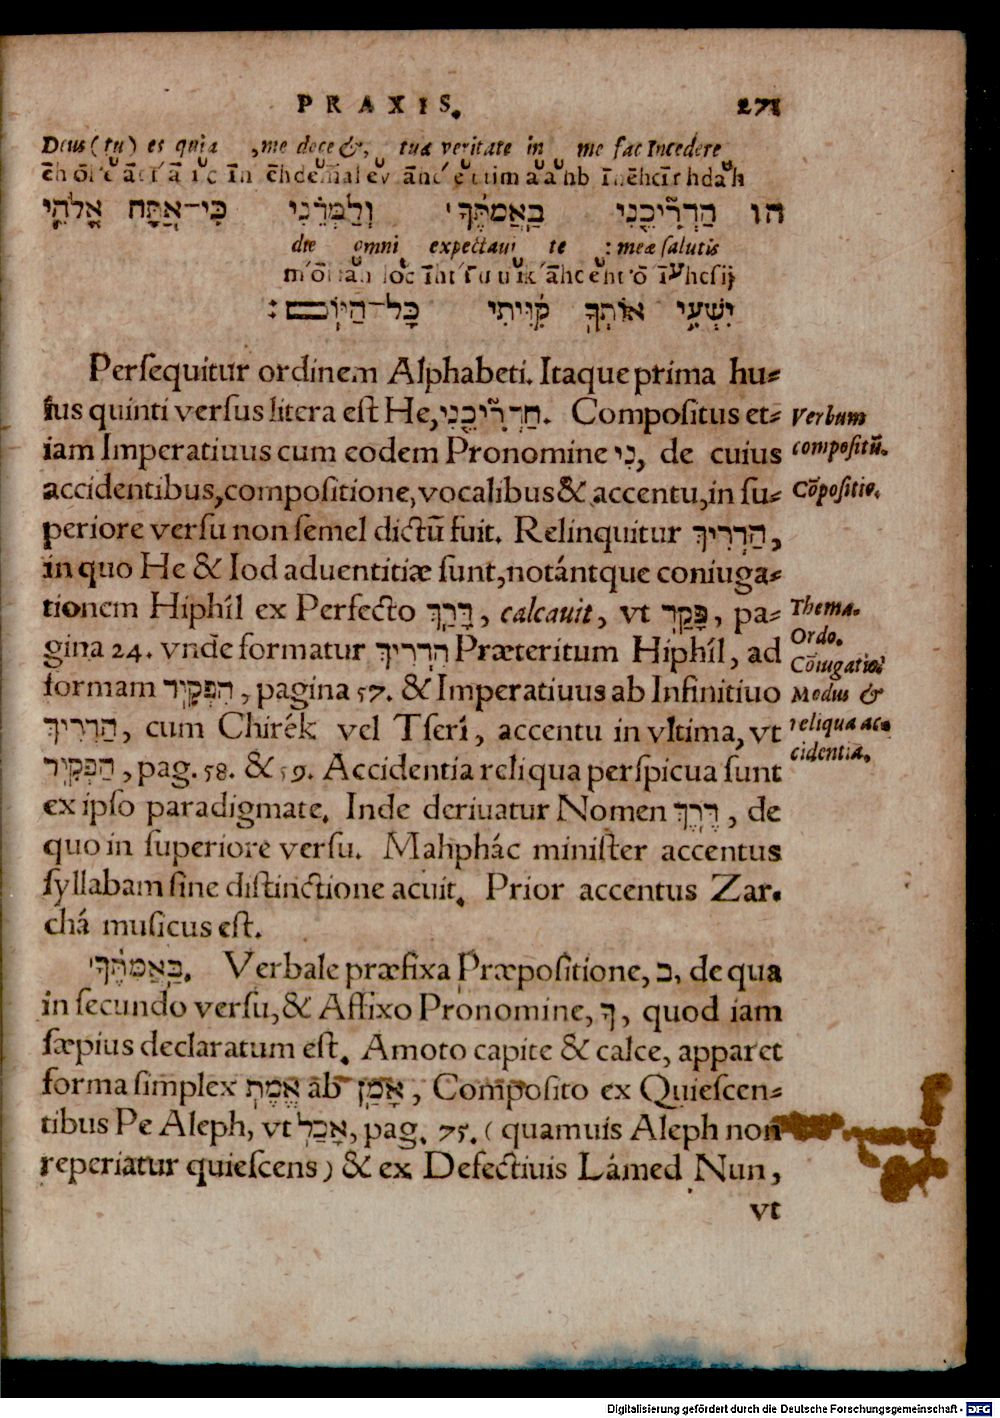 PRAXIS. 271
Deus (tu) es quia , me doce &, tua veritate in me fac Incedere
הו הַדְרִ֘יכֵ֤נִי בַאֲמִתֶּ֨ךָ׀ וְֽלַמְּדֵ֗נִי כִּֽי־אַ֭תָּה אֱלֹהֵ֣י
die omni expectaui te : meæ salutis
יִשְׁעִ֑י אוֹתְךָ֥ קִ֝וִּ֗יתִי כָּל־הַיּֽוֹם׃
Perſequitur ordinem Alphabeti. Itaque prima hu⸗
ius quinti verſus litera eſt He, הַדְרִ֘יכֵ֤נִי. Compoſitus et⸗
iam Imperatiuus cum eodem Pronomine נִי, de cuius
accidentibus, compoſitione, vocalibus & accentu, in ſu⸗
periore verſu non ſemel dictū fuit. Relinquitur הַדְרִיךְ,
in quo He & Iod aduentitiæ ſunt, notántque coniuga⸗
tionem Hiphíl ex Perfecto דָּרַךְ, calcauit, vt פָּקַד, pa⸗
gina 24. vnde formatur הִדְרִיךְ Præteritum Hiphíl, ad
formam הִפְקִיד, pagina 57. & Imperatiuus ab Infinitiuo
הַדְרִיךְ, cum Chirék vel Tſerî, accentu in vltima, vt
הַפְקִיד, pag. 58. & 59. Accidentia reliqua perſpicua ſunt
ex ipſo paradigmate. Inde deriuatur Nomen דֶּרֶךְ, de
quo in ſuperiore verſu. Mahphác miniſter accentus
ſyllabam ſine diſtinctione acuit. Prior accentus Zar⸗
chá muſicus eſt.
בַּאֲמִתֶּ֨ךָ׀. Verbale præfixa Præpoſitione, ב, de qua
in ſecundo verſu, & Affixo Pronomine, ךָ, quod iam
ſæpius declaratum eſt. Amoto capite & calce, apparet
forma ſimplex אֱמֶת ab אָמַן, Compoſito ex Quieſcen⸗
tibus Pe Aleph, vt אָכַל, pag. 75. (quamuis Aleph non
reperiatur quieſcens) & ex Defectiuis Lámed Nun,
vt
Verbum
compoſitū.
Cōpoſitio.
Thema.
Ordo.
Cōiugatio.
Modus &
reliqua ac⸗
cidentia.
Digitalisierung gefördert durch die Deutsche Forschungsgemeinschaft - DFG